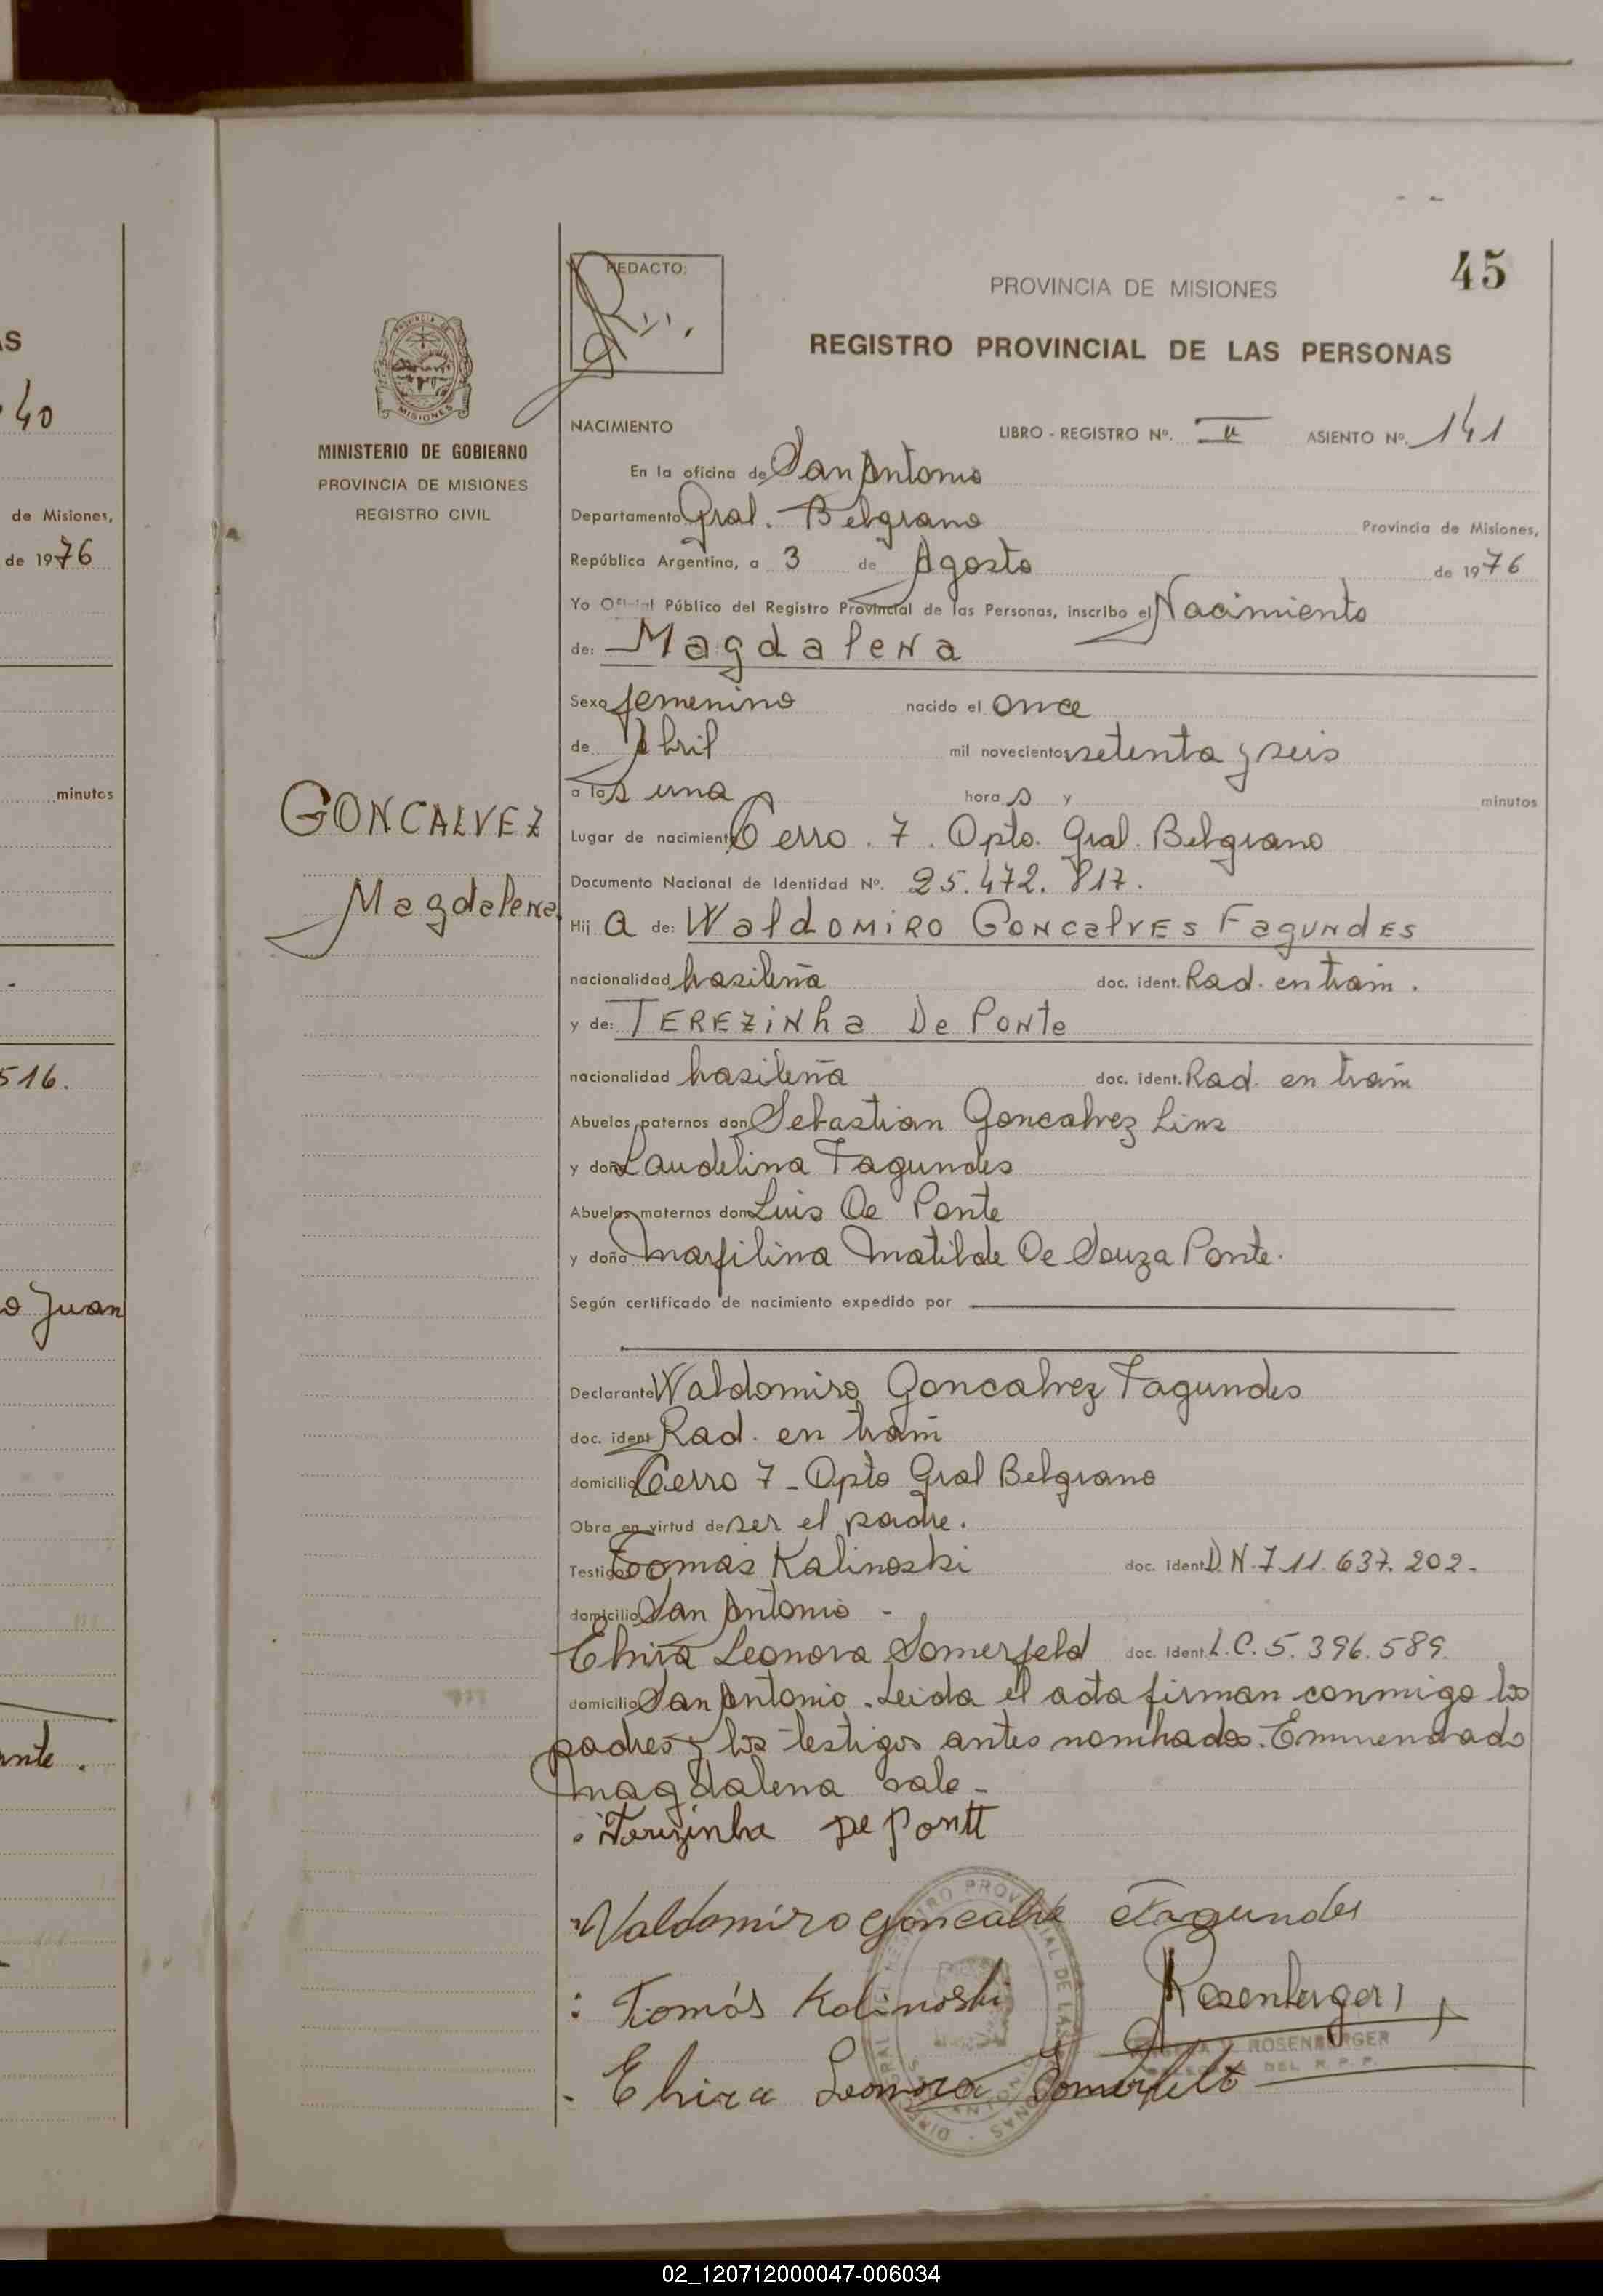 AS
40
de Misiones,
de 1976
minutos
516.
o Juan
ante.
45
REDACTO:
PROVINCIA DE MISIONES
REGISTRO PROVINCIAL DE LAS PERSONAS
PROVINCIA DE MISIONES
MINISTERIO DE GOBIERNO
PROVINCIA DE MISIONES
REGISTRO CIVIL
GONCALVEZ
Magdalena
NACIMIENTO LIBRO - REGISTRO Nº. II ASIENTO Nº. 141
En la oficina de San Antonio
Departamento Gral. Belgrano Provincia de Misiones,
República Argentina, a 3 de Agosto de 1976
Yo Oficial Público del Registro Provincial de las Personas, inscribo el Nacimiento
de: Magdalena
Sexo femenino nacido el once
de Abril mil novecientos setenta y seis
a las una hora s y minutos
Lugar de nacimiento Cerro. 7. Dpto. Gral. Belgrano
Documento Nacional de Identidad Nº. 25.472.817.
Hij a de: Waldomiro Goncalves Fagundes
nacionalidad brasileña doc. ident. Rad. en trám.
y de: Terezinha De Ponte
nacionalidad brasileña doc. ident. Rad. en trám
Abuelos paternos don Sebastian Goncalvez Lins
y doña Laudelina Fagundes
Abuelos maternos don Luis De Ponte
y doña Marfilina Matilde De Souza Ponte.
Según certificado de nacimiento expedido por
Declarante Waldomiro Goncalvez Fagundes
doc. ident Rad. en trám
domicilio Cerro 7 - Dpto Gral Belgrano
Obra en virtud de ser el padre.
Testigos Tomás Kalinoski doc. ident D.N.I 11.637.202.
domicilio San Antonio -
Elvira Leonora Somerfeld doc. ident. L.C. 5.396.589.
domicilio San Antonio. Leida el acta firman conmigo los
padres y los testigos antes nombrados. Emmendado
Magdalena vale -
Terezinha De Pontt
Valdomiro Goncalve Fagundes
Tomás Kalinoski Rosenberger
ROSENBERGER
DEL R.P.P.
Elvira Leonora Somerfelt
02_120712000047-006034